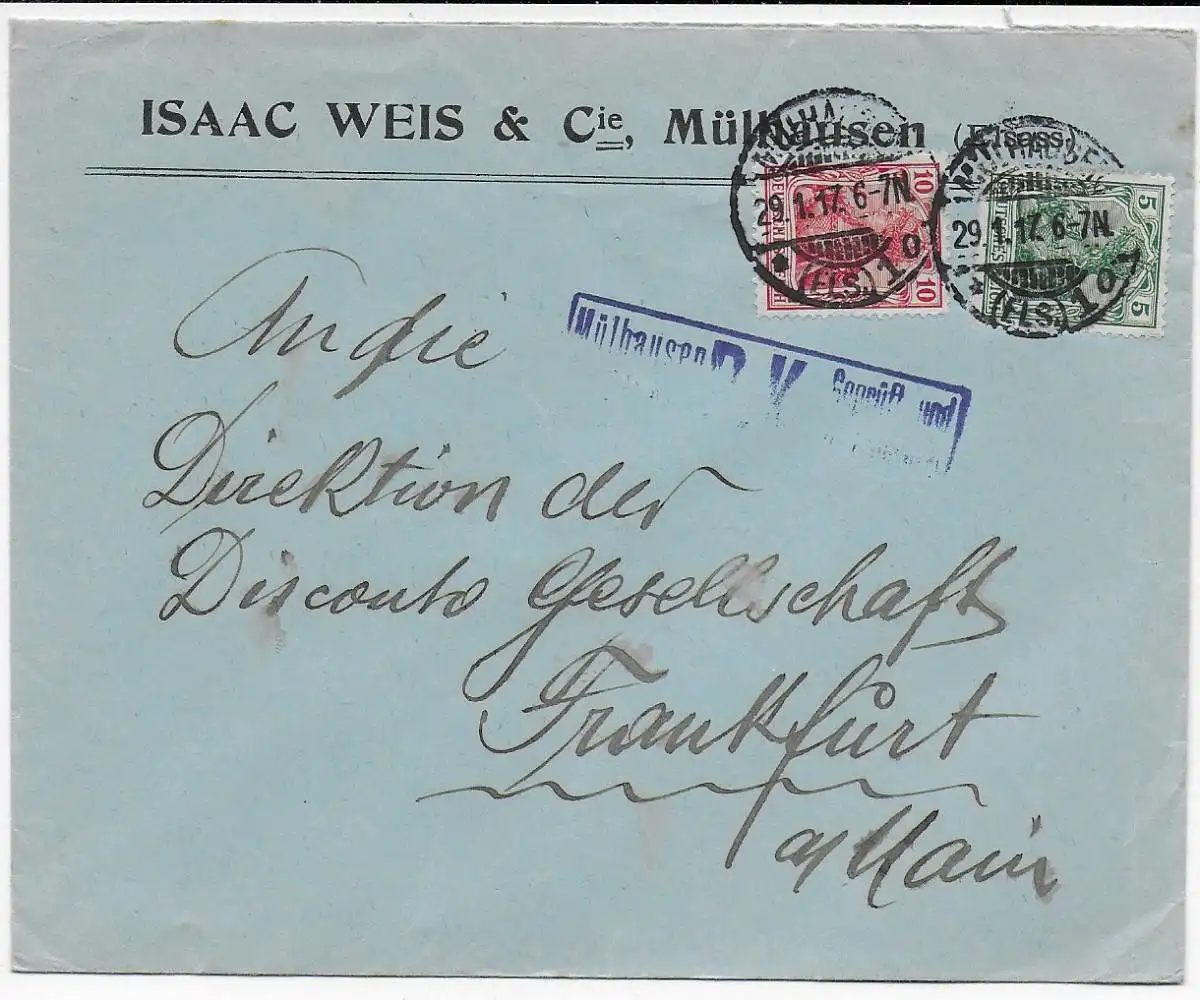 ISAAC WEIS & Cie, Mülhausen (Elsass)
MÜLHAUSEN
29.1.17. 6-7N.
* (ELS.) 1 o
10 10
DEUTSCHES REICH
MÜLHAUSEN
29.1.17. 6-7N.
* (ELS.) 1 o
5 5
Mülhausen P. K. Geprüft und
An die
Direktion der
Disconto Gesellschaft
Frankfurt
a/Main